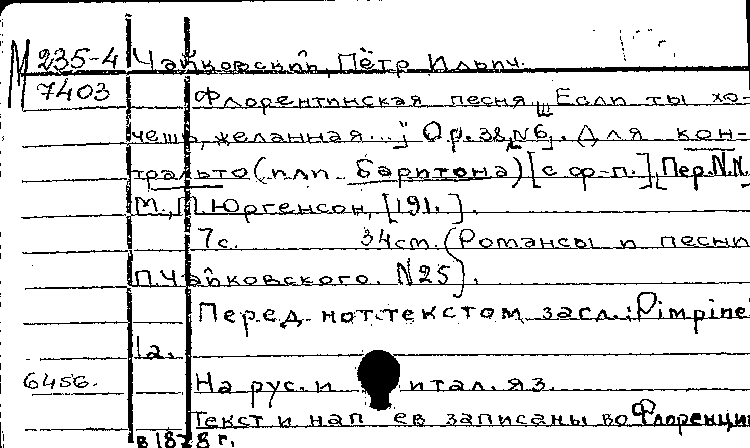 М 235-4 Чайковский, Пётр Ильич.
7403 Флорентинская песня „Если ты хо-
чешь, желанная..." Op. 38, N6. Для кон-
тральто (или баритона) [с ф-п.], Пер. N.N.
М., П. Юргенсон, [191. ].
7с. 34см. (Романсы и песни
П. Чайковского. N25).
Перед нот. текстом загл.: Pimpinel
la.
6456. На рус. и итал. яз.
Текст и напев записаны во Флоренции
в 1878 г.